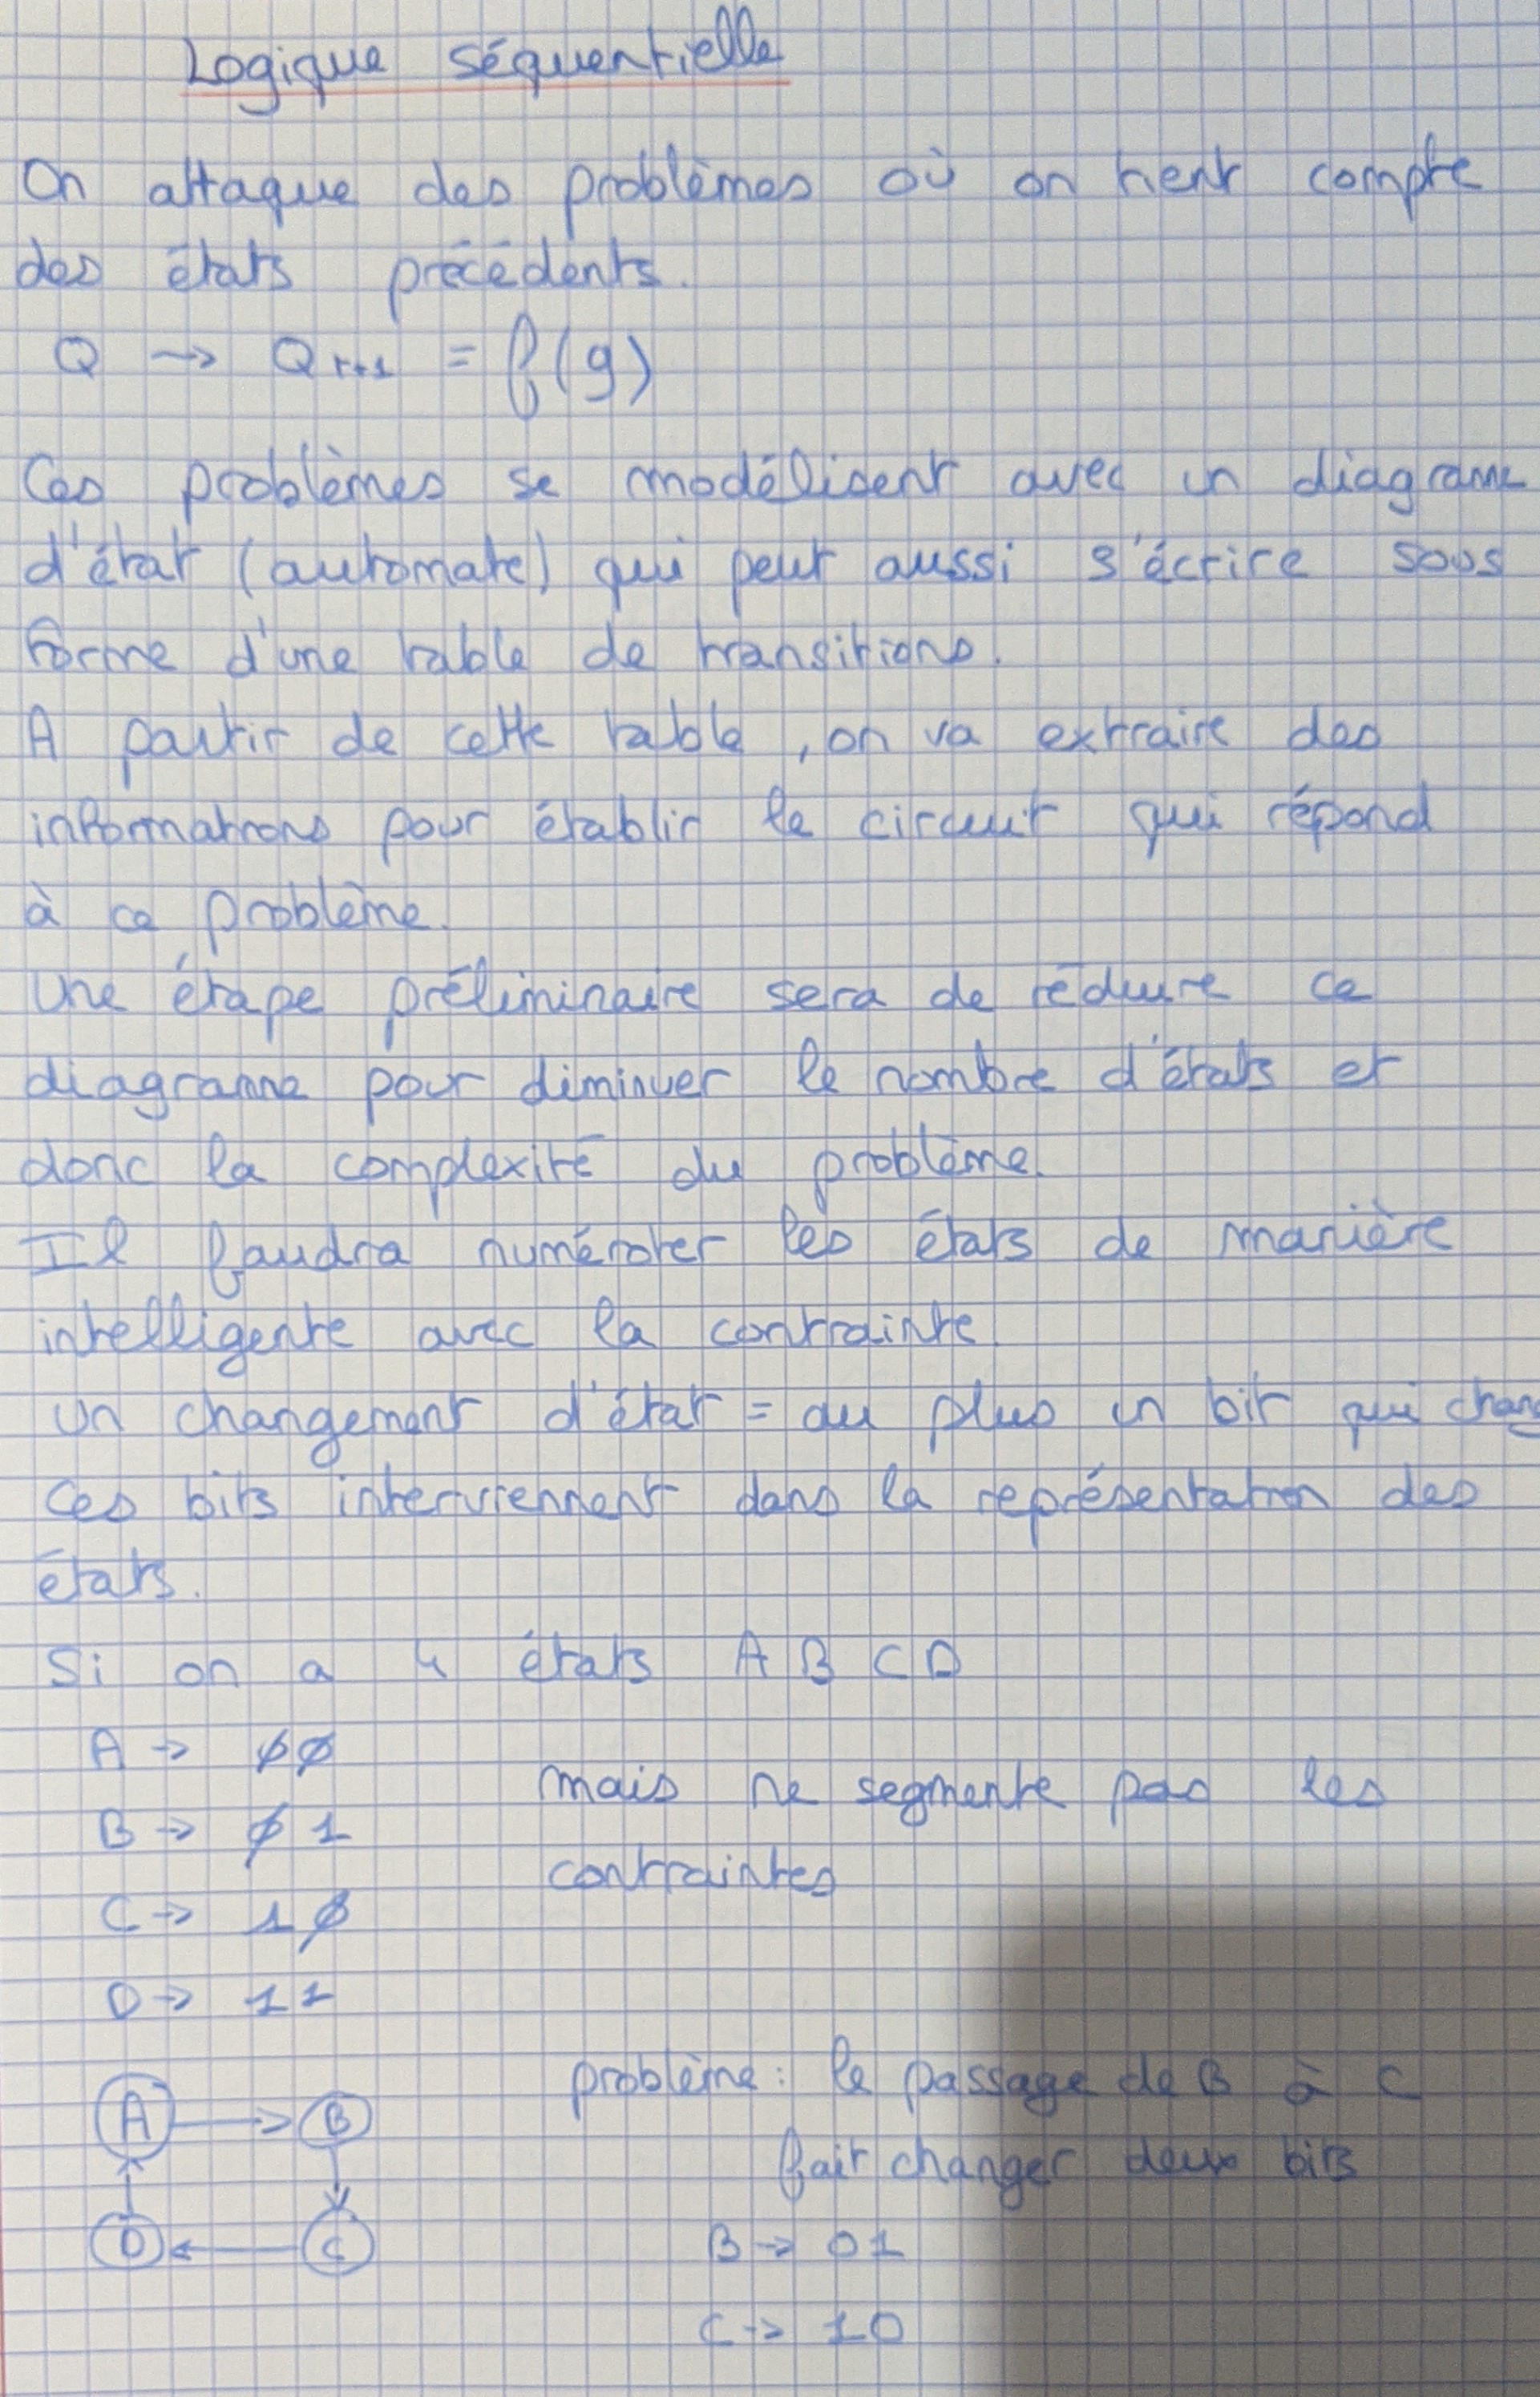 Logique séquentielle
On attaque des problèmes où on tient compte
des états précédents.
Q → Qt+1 = f(g)
Ces problèmes se modélisent avec un diagramme
d'état (automate) qui peut aussi s'écrire sous
forme d'une table de transitions.
A partir de cette table, on va extraire des
informations pour établir le circuit qui répond
à ce problème.
Une étape préliminaire sera de réduire ce
diagramme pour diminuer le nombre d'états et
donc la complexité du problème.
Il faudra numéroter les états de manière
intelligente avec la contrainte
un changement d'état = au plus un bit qui chang
Ces bits interviennent dans la représentation des
états.
Si on a 4 états A B C D
A → 00
B → 01
mais ne segmente pas les
contraintes
C → 10
D → 11
A B
D C
problème : le passage de B à C
fait changer deux bits
B → 01
C → 10